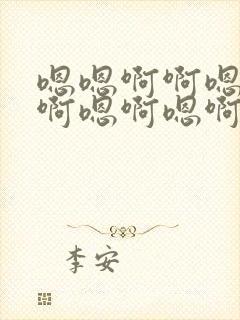 嗯嗯啊啊嗯
啊嗯啊嗯啊
李安